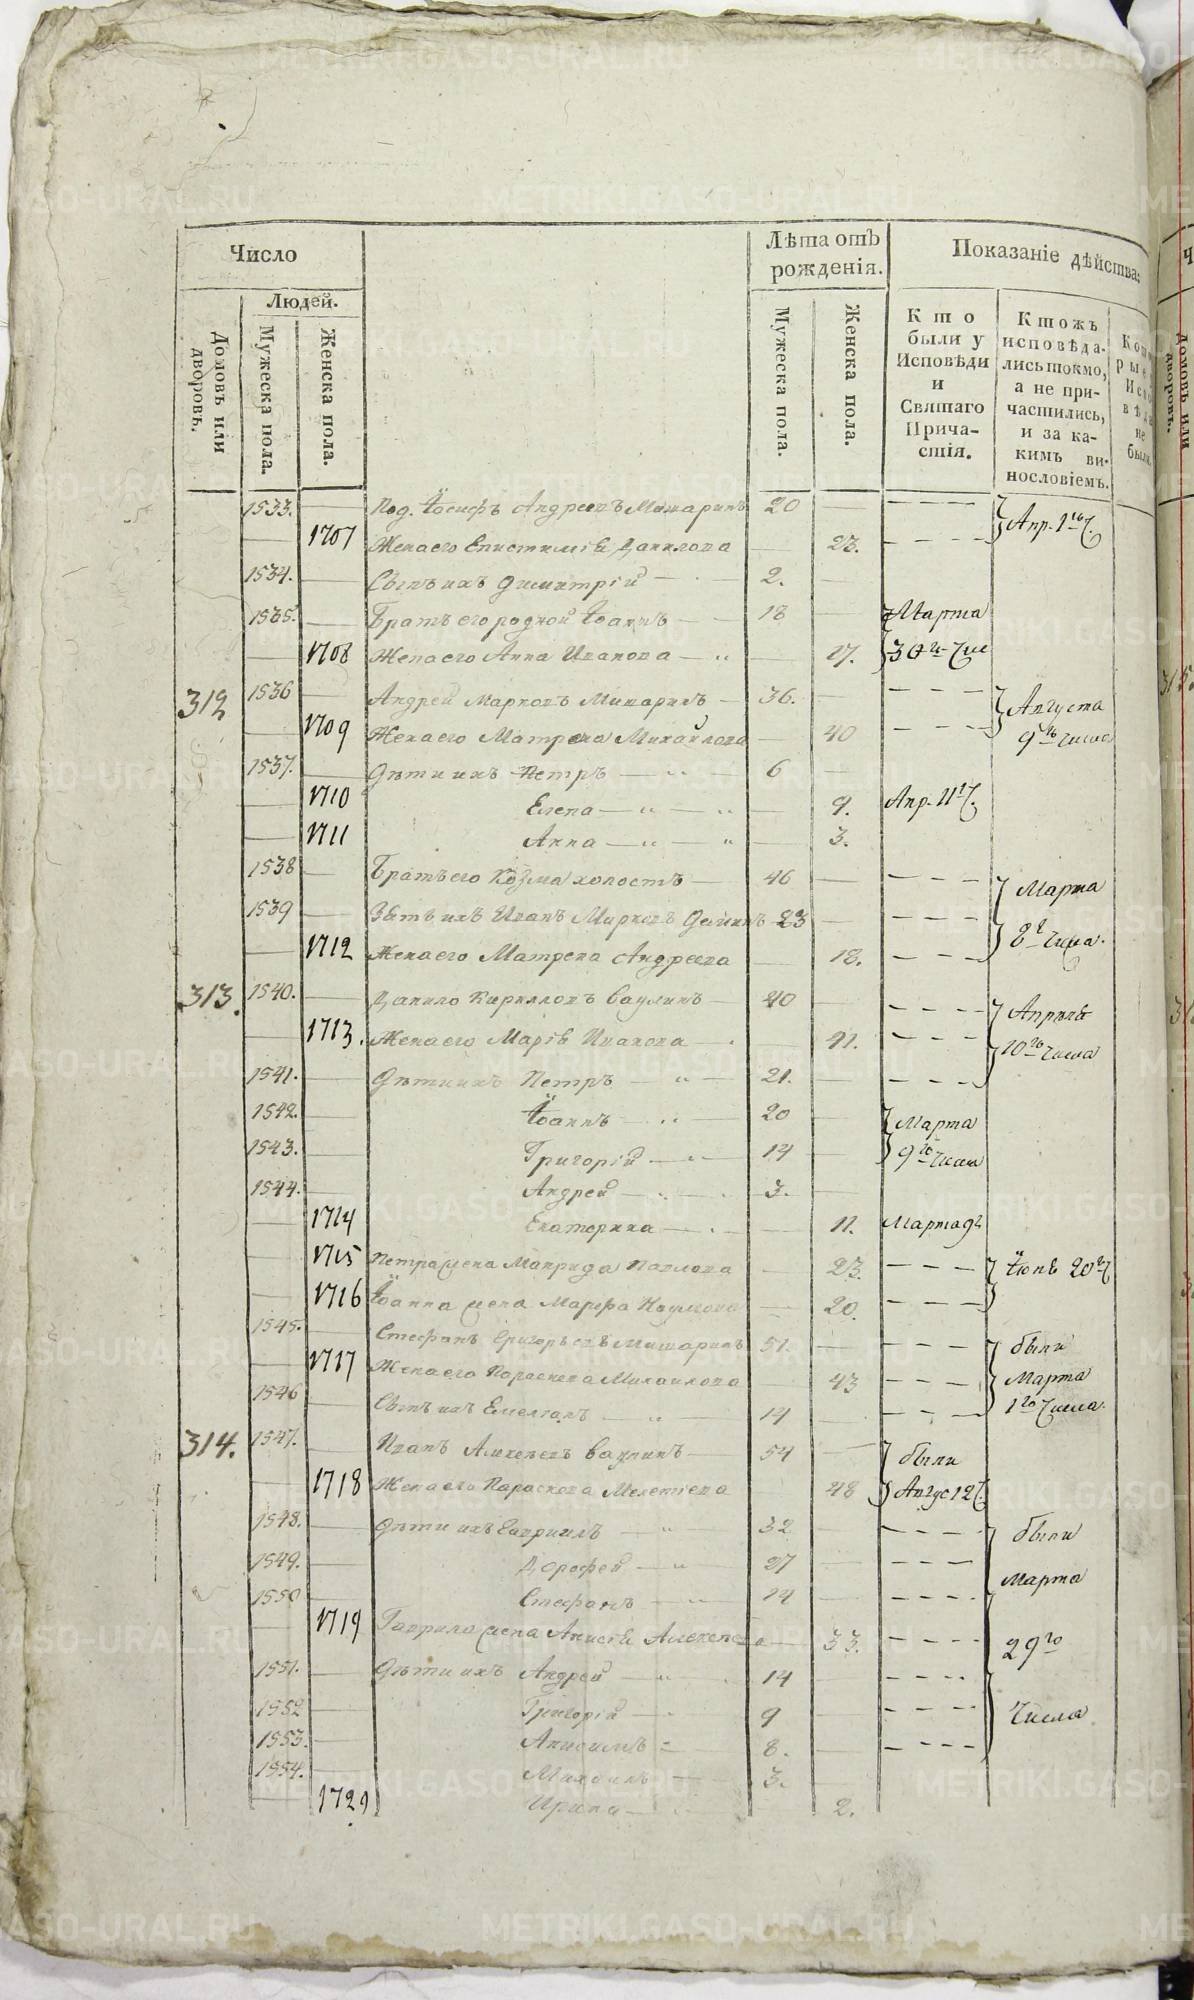 Число
Лѣта отъ рожденія.
Показаніе дѣйства:
Людей.
Домовъ или дворовъ.
Мужеска пола.
Женска пола.
Мужеска пола.
Женска пола.
Кто были у Исповѣди и Святаго Причастія.
Ктожъ исповѣдались токмо, а не причастились, и за какимъ винословіемъ.
1533. Под. Іосифъ Андреевъ Мишаринъ 20
1707 Жена его Епистиміѣ Данилова 23. Апр. 1го Ч.
1534. Сынъ ихъ Димитрій 2.
1535. Братъ его родной Іоаннъ 18 Марта
1708 Жена его Анна Иванова 17. 30го Чис
312 1536 Андрей Марковъ Мишаринъ 36. Августа
1709 Жена его Матрена Михайлова 40 9го числа
1537. Дѣти ихъ Петръ 6
1710 Елена 9. Апр. 11 Ч.
1711 Анна 3.
1538 Братъ его Козма холостъ 46 Марта
1539 Зять ихъ Иванъ Марковъ 23
1712 Жена его Матрена Андреева 18. 8г числа.
313. 1540. Данило Кирилловъ Ваулинъ 40 Апрѣля
1713. Жена его Маріѣ Иванова 41. 10го числа
1541. Дѣти ихъ Петръ 21.
1542. Іоаннъ 20 Марта
1543. Григорій 14 9го числа
1544. Андрей 3.
1714 Екатерина 11. Марта 9г
1715 Петра жена Маврида Павлова 23. Іюнѣ 20г Ч
1716 Іоанна жена Марфа Наумова 20.
1545. Стефанъ Григорьевъ Мишаринъ 51. были
1717 Жена его Параскева Михаилова 43 Марта
1546 Сынъ ихъ Емеліанъ 14 1го Числа.
314. 1547. Иванъ Алексѣевъ Ваулинъ 54 были
1718 Жена его Параскева Мелетіева 48 Авгус 12 Ч.
1548. Дѣти ихъ Гавриилъ 32 были
1549. Дорофей 27
1550 Стефанъ 14 Марта
1719 Гаврила жена Анисіѣ Алексеева 33. 29го
1551. Дѣти ихъ Андрей 14
1552 Григорій 9 Числа
1553. Анисимъ 8.
1554. Михаилъ 3.
Ирина 2.
METRIKI.GASO-URAL.RU